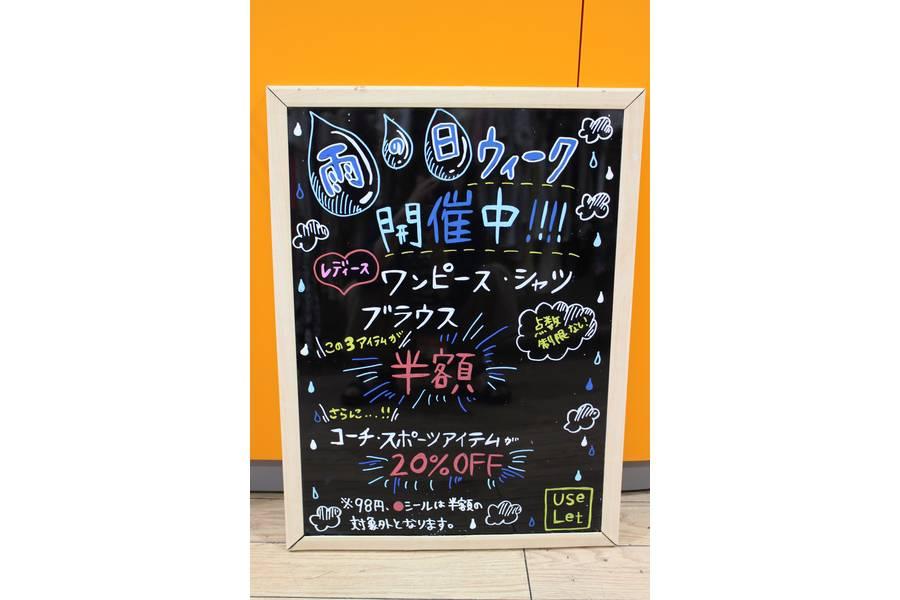 雨の日ウィーク
開催中!!!!
レディース ワンピース・シャツ
ブラウス
点数
制限ない
この3アイテムが
半額
さらに...!!
コーチ・スポーツアイテムが
20%OFF
※98円、●シールは半額の
対象外となります。
USe
Let